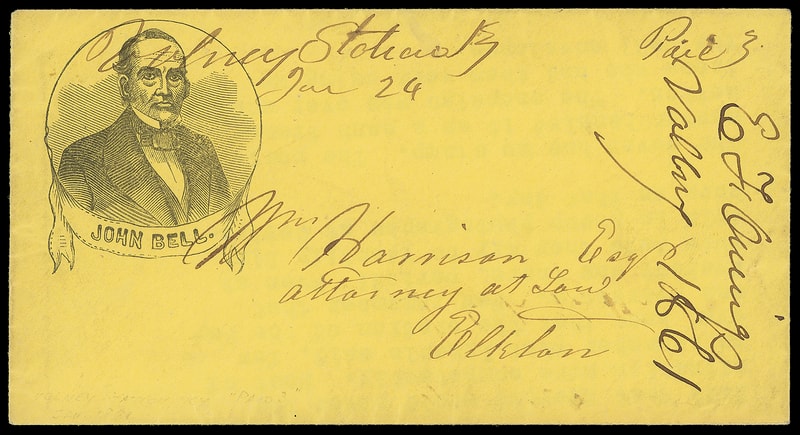 Volney Station Ky
Jan 24
Paid 3
JOHN BELL.
Wm Harrison Esq
attorney at Law
Elkton
Volney 1861